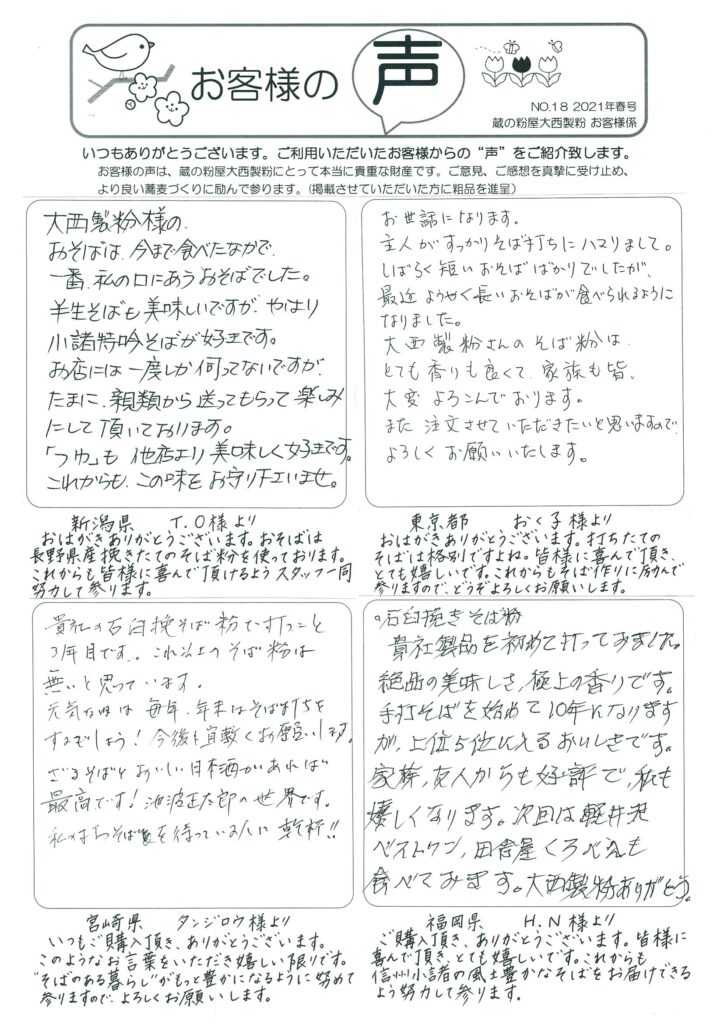 お客様の声
NO.18 2021年春号
蔵の粉屋大西製粉 お客様係
いつもありがとうございます。ご利用いただいたお客様からの“声”をご紹介致します。
お客様の声は、蔵の粉屋大西製粉にとって本当に貴重な財産です。ご意見、ご感想を真摯に受け止め、
より良い蕎麦づくりに励んで参ります。(掲載させていただいた方に粗品を進呈)
大西製粉様の、
おそばは、今まで食べたなかで、
一番、私の口にあうおそばでした。
半生そばも美味しいですが、やはり
小諸特吟そばが好きです。
お店には一度しか伺ってないですが、
たまに、親類から送ってもらって楽しみ
にして頂いております。
「つゆ」も他店より美味しく好きです。
これからも、この味をお守り下さいませ。
新潟県 T.O様より
おはがきありがとうございます。おそばは
長野県産挽きたてのそば粉を使っております。
これからも皆様に喜んで頂けるようスタッフ一同
努力して参ります。
お世話になります。
主人がすっかりそば打ちにハマりまして。
しばらく短いおそばばかりでしたが、
最近ようやく長いおそばが食べられるように
なりました。
大西製粉さんのそば粉は、
とても香りも良くて、家族も皆、
大変よろこんでおります。
また注文させていただきたいと思いますので、
よろしくお願いいたします。
東京都 おく子様より
おはがきありがとうございます。打ちたての
そばは格別ですよね。皆様に喜んで頂き、
とても嬉しいです。これからもそば作りに励んで
参りますので、どうぞよろしくお願いします。
貴社の石臼挽そば粉で打つこと
年目です。これ以上のそば粉は
無いと思っています。
元気な内は毎年、年末はそば打ちを
するでしょう!今後も宜敷くお願いします。
ざるそばとおいしい日本酒があれば
最高です!池波正太郎の世界です。
私の打ちそばを待っている人に乾杯!!
宮崎県 タンジロウ様より
いつもご購入頂き、ありがとうございます。
このようなお言葉をいただき嬉しい限りです。
“そばのある暮らし”がもっと豊かになるように努めて
参りますので、よろしくお願いします。
○石臼挽きそば粉
貴社製品を初めて打ってみました。
絶品の美味しさ、極上の香りです。
手打そばを始めて10年になります
が、上位5位に入るおいしさです。
家族、友人からも好評で、私も
嬉しくなります。次回は軽井沢
ベストワン、田舎屋くろべえも
食べてみます。大西製粉ありがとう。
福岡県 H.N様より
ご購入頂き、ありがとうございます。皆様に
喜んで頂き、とても嬉しいです。これからも
信州小諸の風土豊かなそばをお届けできる
よう努力して参ります。